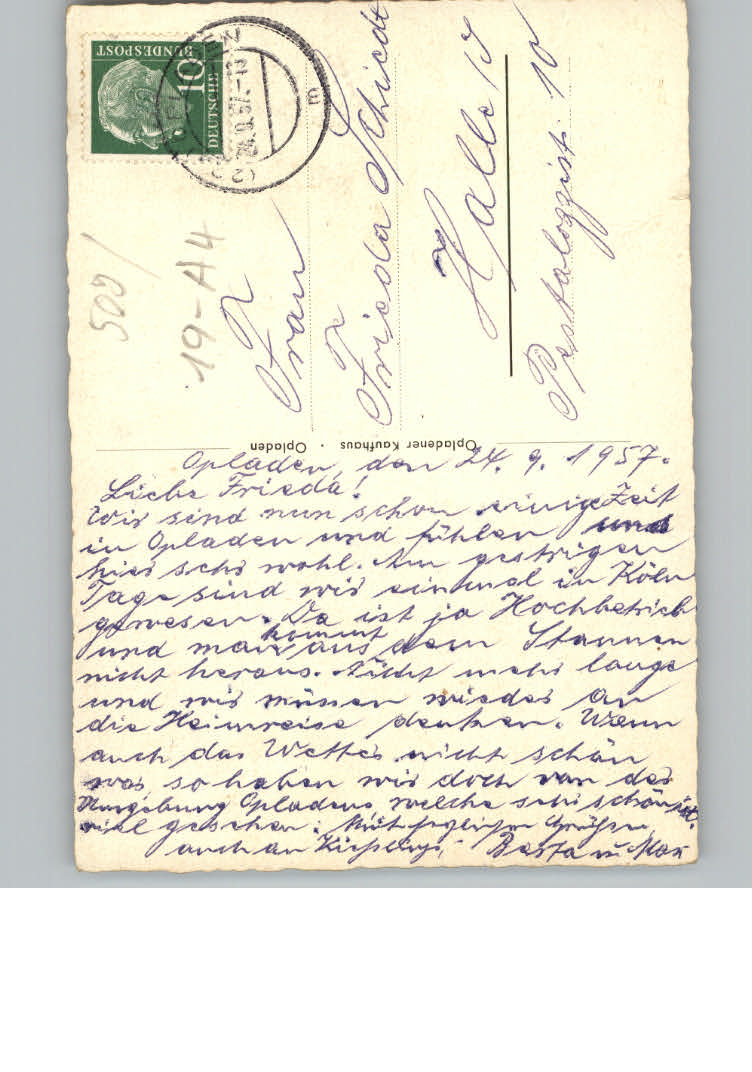 DEUTSCHE
BUNDESPOST
10
24.9.57.-18
m
509/
19-A4
Frau
Frieda Schiedt
Halle
Pestalozzistr. 10
Opladener Kaufhaus · Opladen
Opladen, den 24. 9. 1957.
Liebe Frieda!
Wir sind nun schon einige Zeit
in Opladen und fühlen uns
hier sehr wohl. Am gestrigen
Tage sind wir einmal in Köln
gewesen. Da ist ja Hochbetrieb
und man kommt aus dem Staunen
nicht heraus. Nicht mehr lange
und wir müssen wieder an
die Heimreise denken. Wenn
auch das Wetter nicht schön
war so haben wir doch von der
Umgebung Opladens welche sehr schön ist.
viel gesehen. Mit Grüßen
auch an Berta u. Max